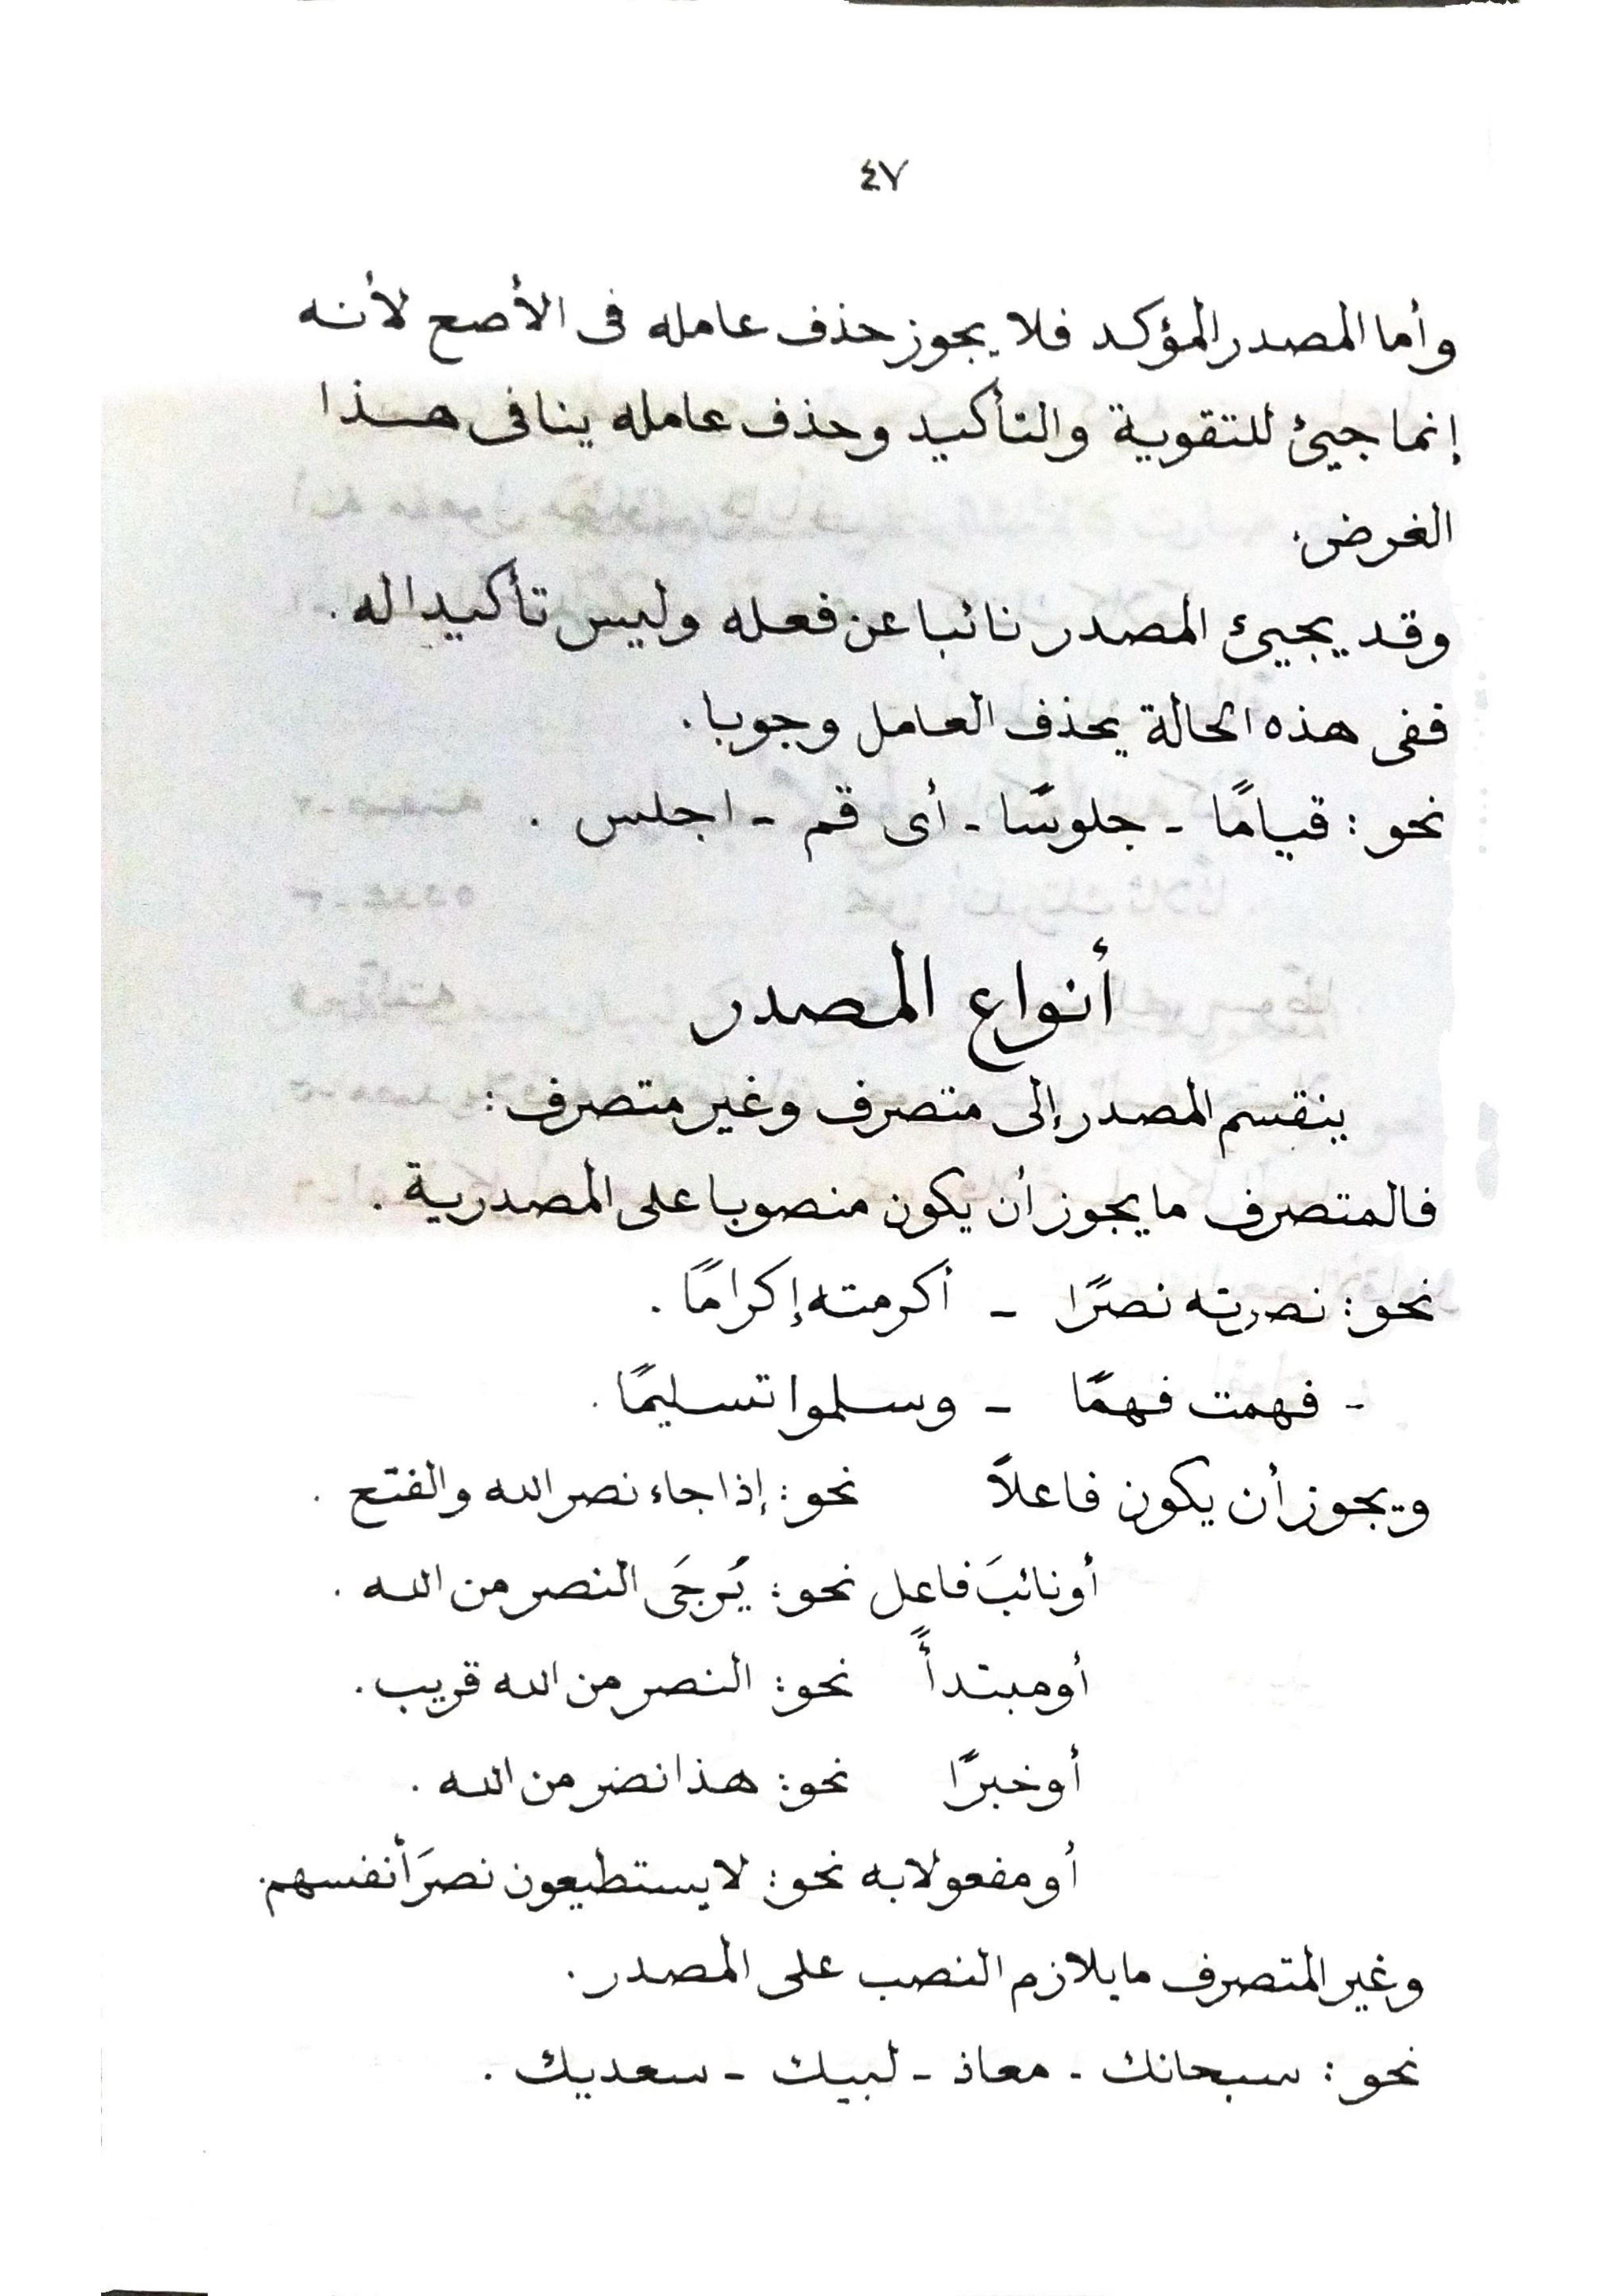 ٤٧
وأما المصدر المؤكد فلا يجوز حذف عامله فى الأصح لأنه
إنما جيئ للتقوية والتأكيد وحذف عامله ينافى هذا
الغرض.
وقد يجيئ المصدر نائبا عن فعله وليس تأكيدا له .
ففى هذه الحالة يحذف العامل وجوبا .
نحو : قيامًا - جلوسًا - أى قم - اجلس .
أنواع المصدر
ينقسم المصدر إلى متصرف وغير متصرف :
فالمتصرف ما يجوز أن يكون منصوبا على المصدرية .
نحو : نصرته نصرًا - أكرمته إكرامًا .
- فهمت فهمًا - وسلموا تسليمًا .
ويجوز أن يكون فاعلاً نحو : إذا جاء نصر الله والفتح .
أو نائبَ فاعل نحو : يُرجَى النصر من الله .
أو مبتدأً نحو : النصر من الله قريب .
أو خبرًا نحو : هذا نضر من الله .
أو مفعولا به نحو : لا يستطيعون نصرَ أنفسهم .
وغير المتصرف ما يلازم النصب على المصدر .
نحو : سبحانك - معاذ - لبيك - سعديك .